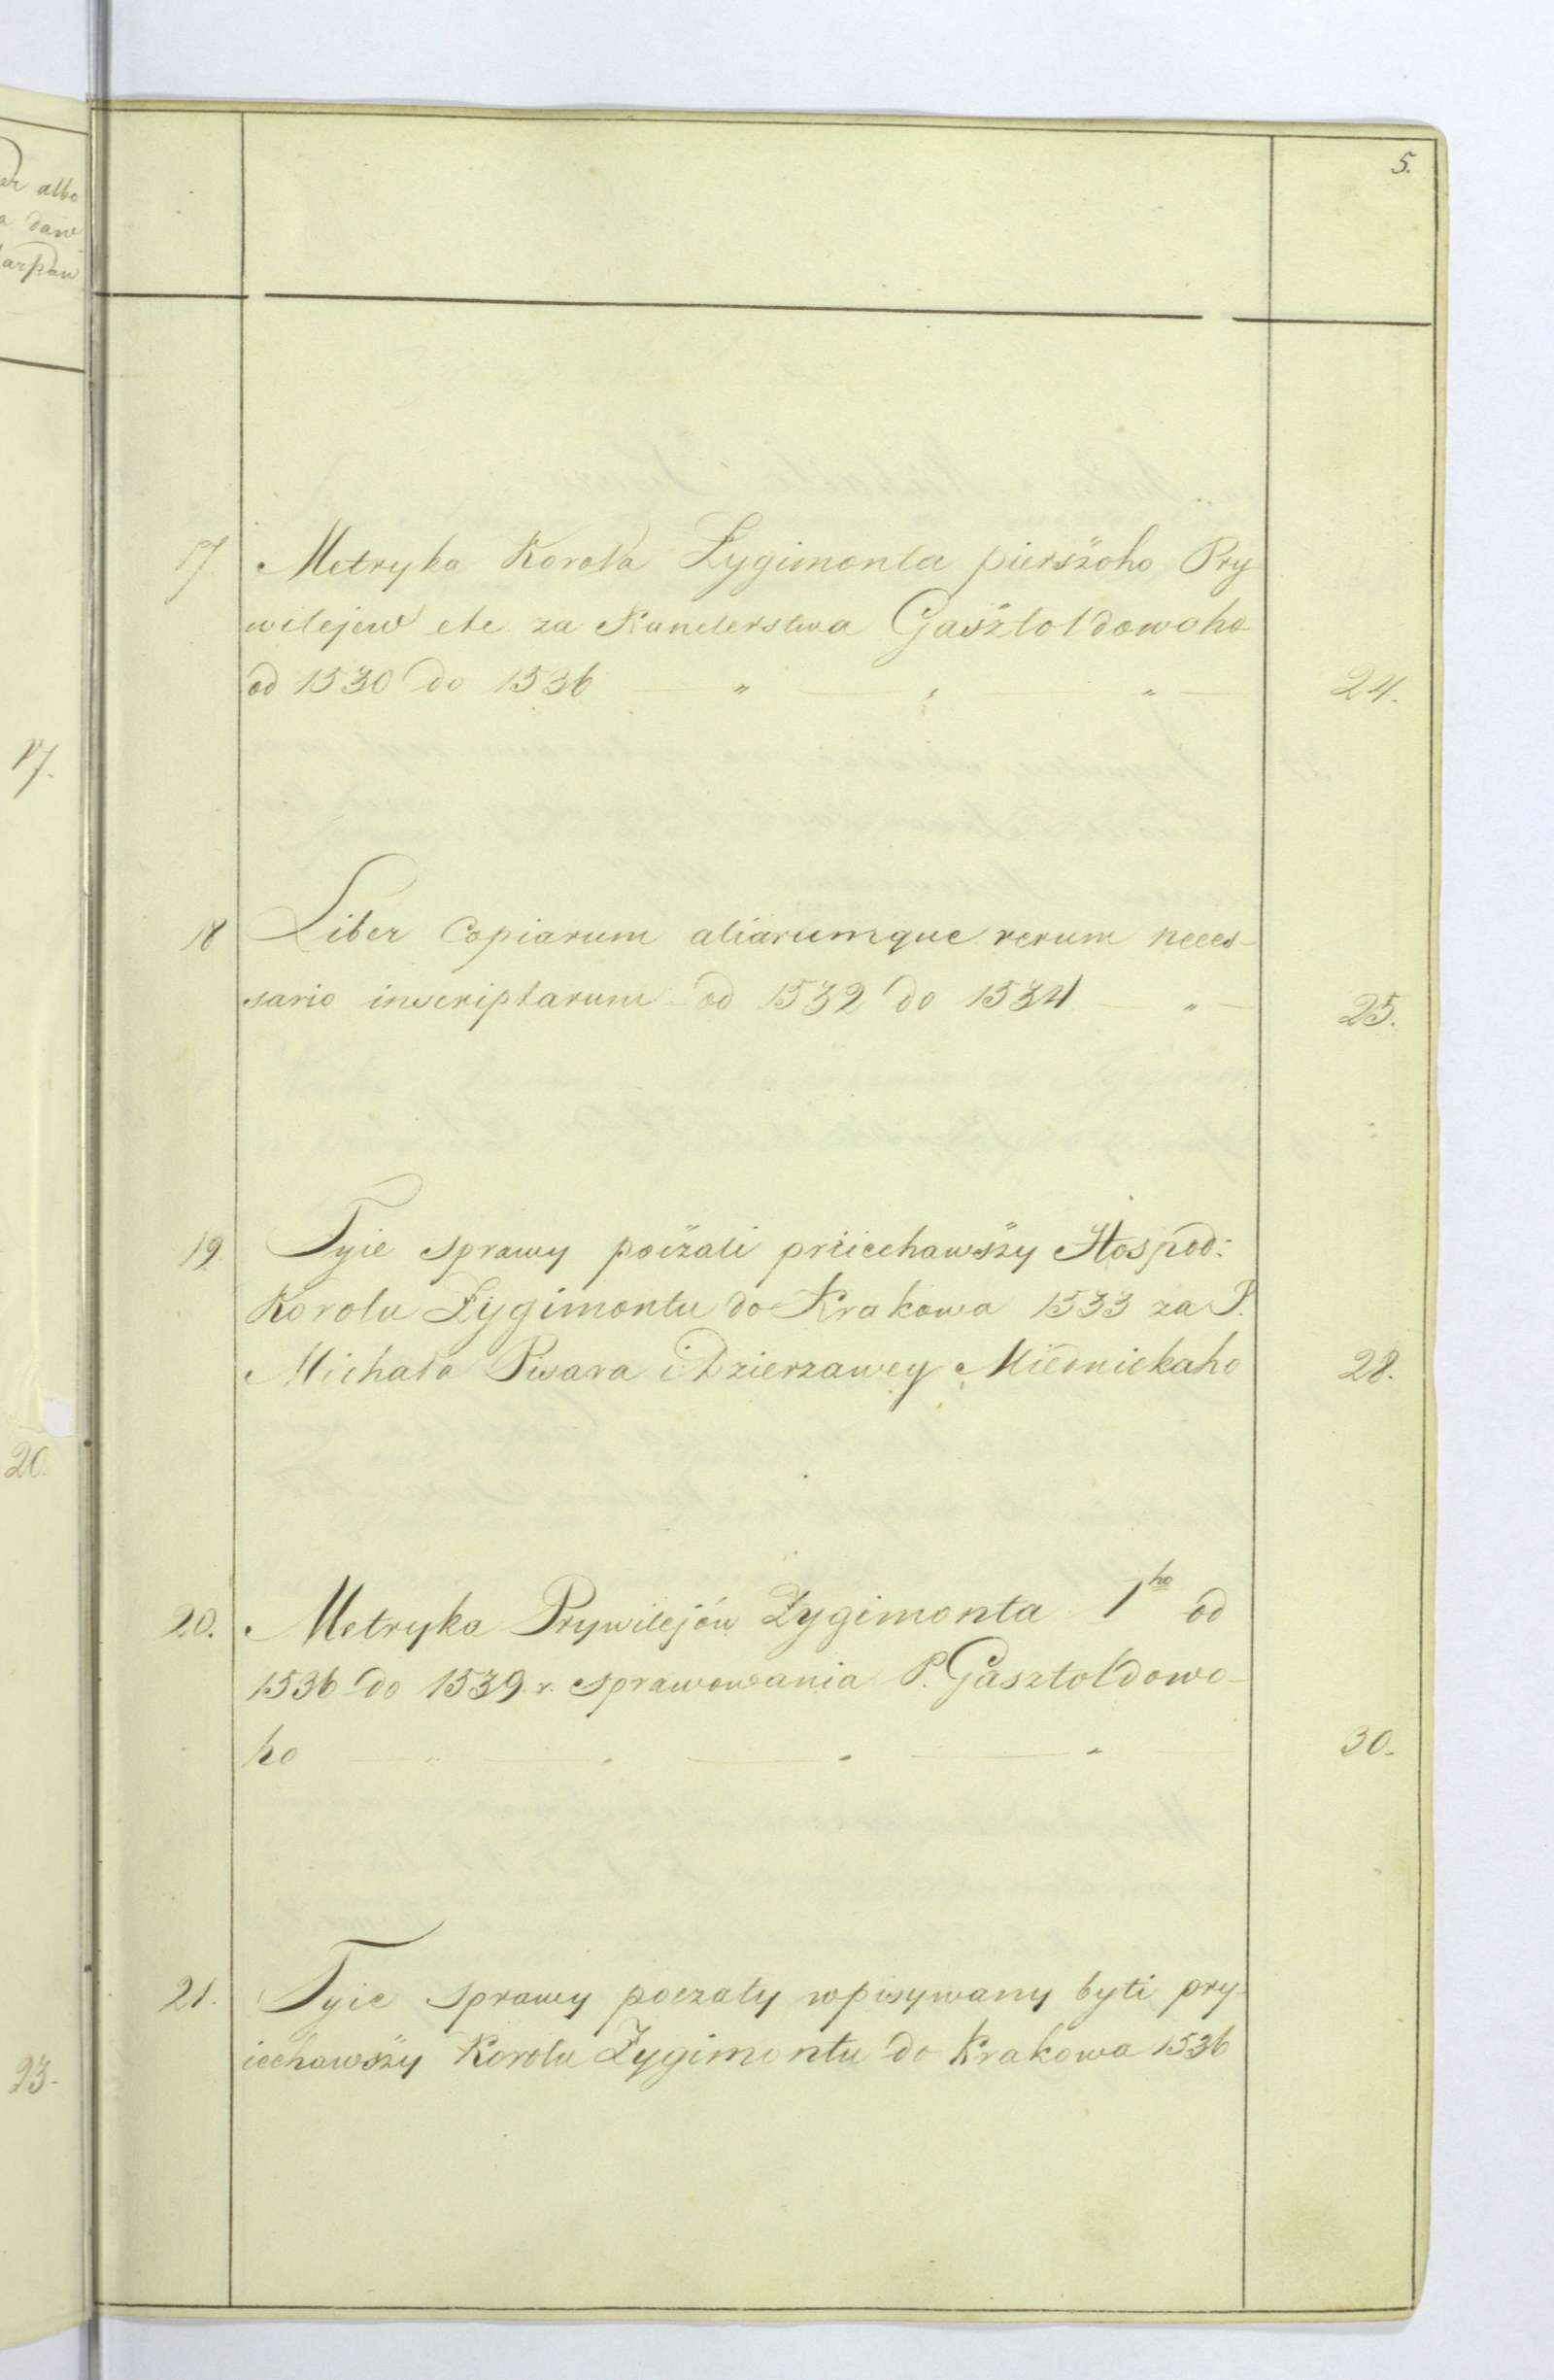 5.
17 Metryka Korola Zygimonta pierszoho Pry
wilejew etc za Kanclerstwa Gasztoldowoho
od 1530 do 1536 — " — " — " — 24.
18 Liber Copiarum aliarumque rerum neces-
sario inscriptarum od 1532 do 1534 — " — 25.
19 Tyie sprawy poczali priiechawszy Hospod:
Korolu Zygimontu do Krakowa 1533 za P.
Michała Pisara i Dzierzawcy Miednickaho 28.
20. Metryka Prywilejów Zygimonta 1ho od
1536 do 1539 r. sprawowania P. Gasztoldowo-
ho — " — " — " — " — 30.
21. Tyie sprawy poczaty wpisywany byti pry-
iechawszy Korolu Zygimontu do Krakowa 1536
albo
daw
17.
20.
23.